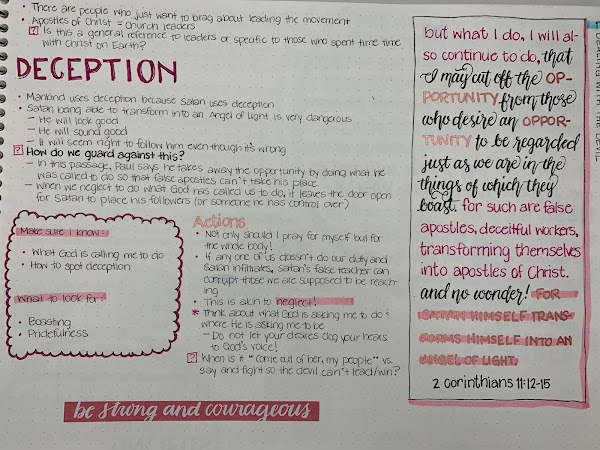 • There are people who just want to brag about leading the movement
• Apostles of Christ = Church leaders
? Is this a general reference to leaders or specific to those who spent time time
with Christ on Earth?
DECEPTION
• Mankind uses deception because Satan uses deception
• Satan being able to transform into an Angel of Light is very dangerous
– He will look good
– He will sound good
– It will seem right to follow him even though it's wrong
? How do we guard against this?
– In this passage, Paul says he takes away the opportunity by doing what he
was called to do so that false apostles can't take his place
– When we neglect to do what God has called us to do, it leaves the door open
for Satan to place his followers (or someone he has control over)
Make sure I know:
• What God is calling me to do
• How to spot deception
What to look for:
• Boasting
• Pridefulness
Actions
• Not only should I pray for myself but for
the whole body!
• If any one of us doesn't do our duty and
Satan infiltrates, Satan's false teacher can
corrupt those we are supposed to be reach-
ing
• This is akin to neglect!
* Think about what God is asking me to do &
where He is asking me to be
– Do not let your desires clog your hears
to God's voice!
? When is it "come out of her, my people" vs.
say and fight so the devil can't lead/win?
be strong and courageous
but what I do, I will al-
so continue to do, that
I may cut off the OP-
PORTUNITY from those
who desire an OPPOR-
TUNITY to be regarded
just as we are in the
things of which they
boast. for such are false
apostles, deceitful workers,
transforming themselves
into apostles of Christ.
and no wonder! FOR
SATAN HIMSELF TRANS-
FORMS HIMSELF INTO AN
ANGEL OF LIGHT.
2 Corinthians 11:12-15
DEALING WITH THE DEVIL